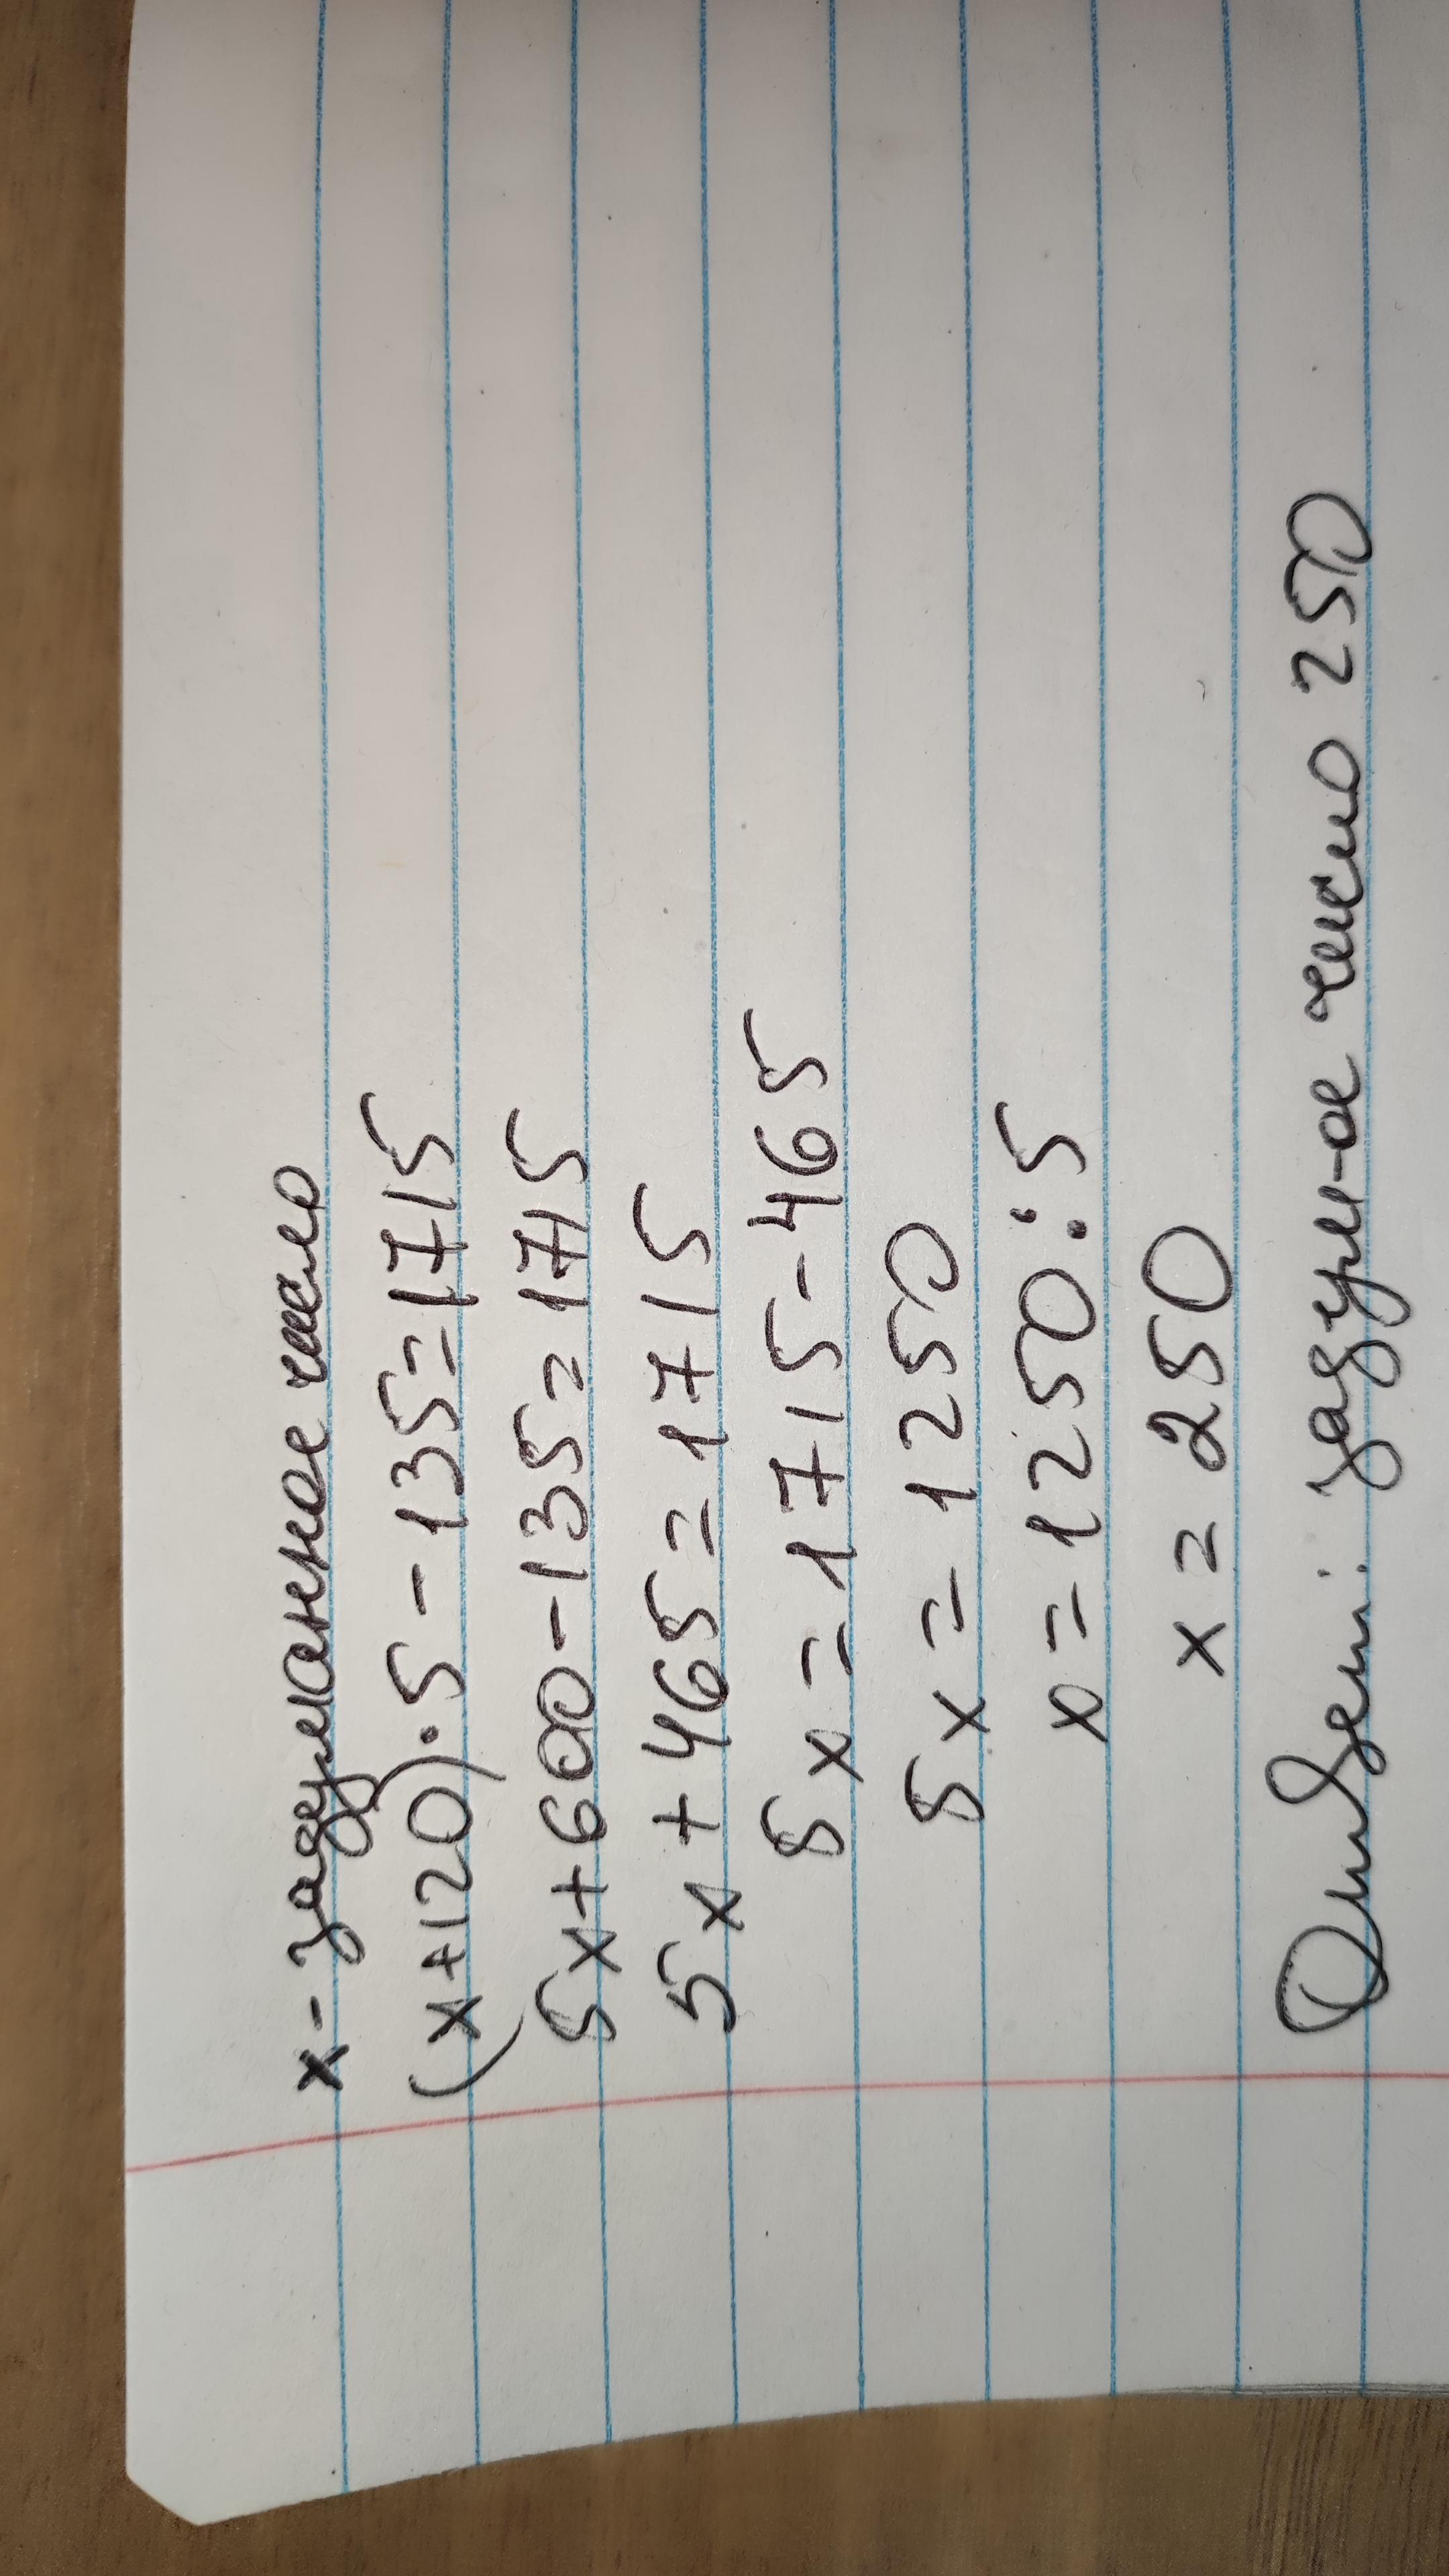 x - задуманное число
(x+120)·5-135=1715
5x+600-135=1715
5x+465=1715
5x=1715-465
5x=1250
x=1250:5
x=250
Ответ: задум-ое число 250